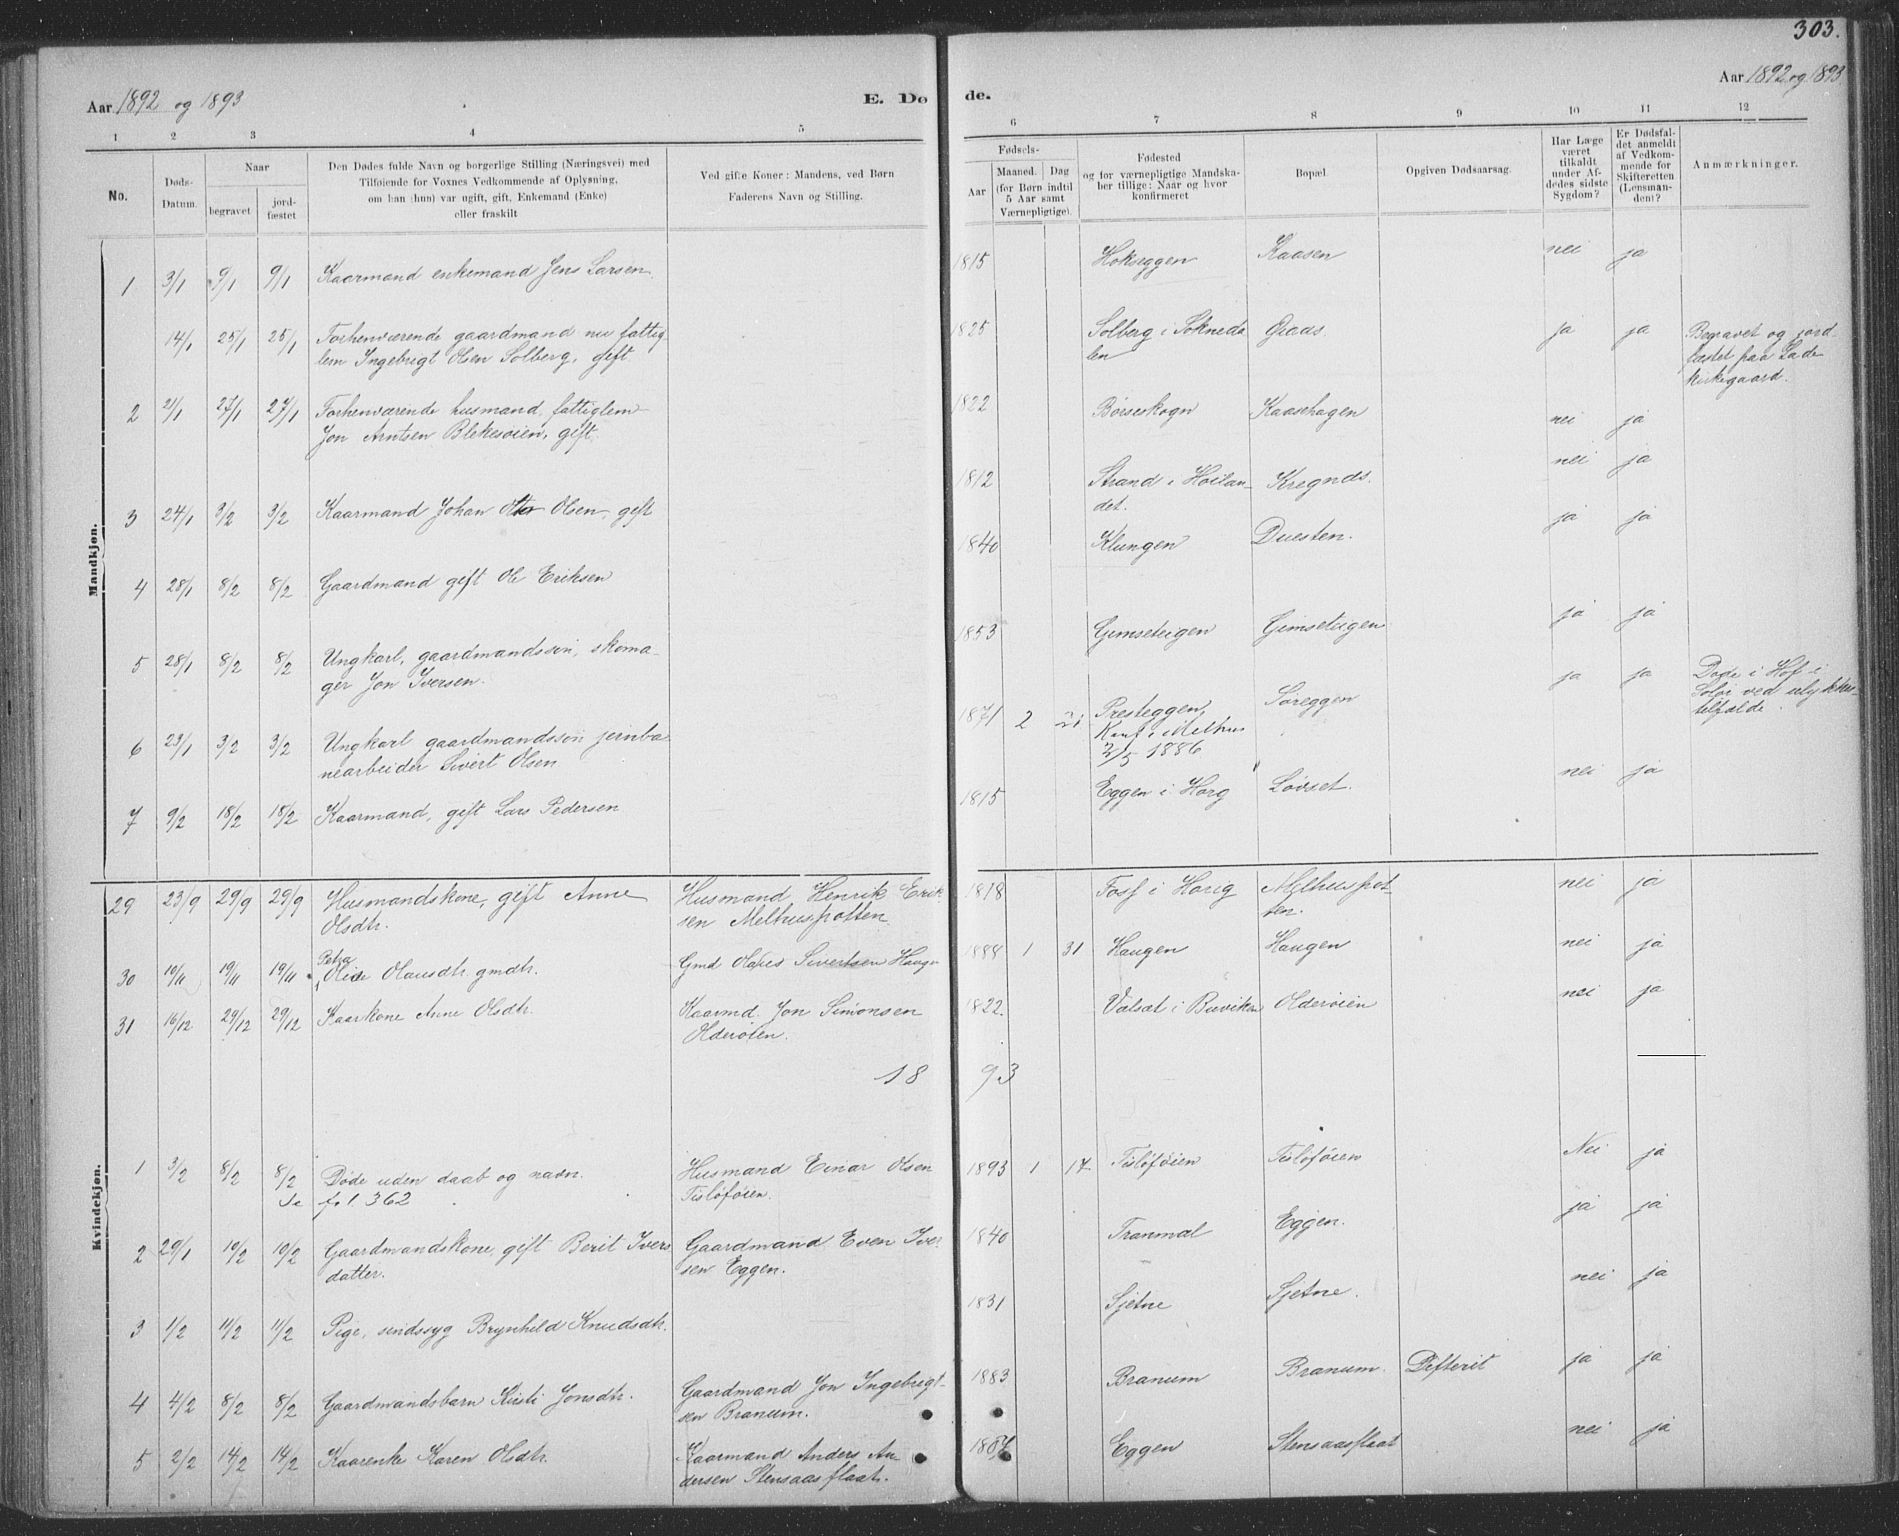 303.
Aar 1892 og 1893
E. Dø
de.
Aar 1892 og 1893
1 2 3 4 5
6 7 8 9 10 11 12
No.
Døds-
Datum.
Naar
begravet
jord-
fæstet
Den Dødes fulde Navn og borgerlige Stilling (Næringsvei) med
Tilføiende for Voxnes Vedkommende af Oplysning,
om han (hun) var ugift, gift, Enkemand (Enke)
eller fraskilt
Ved gifte Koner: Mandens, ved Børn
Faderens Navn og Stilling.
Fødsels-
Aar
Maaned. Dag
(for Børn indtil
5 Aar samt
Værnepligtige).
Fødested
og for værnepligtige Mandska-
ber tillige: Naar og hvor
konfirmeret
Bopæl.
Opgiven Dødsaarsag.
Har Læge
været
tilkaldt
under Af-
dødes sidste
Sygdom?
Er Dødsfal-
det anmeldt
af Vedkom-
mende for
Skifteretten
(Lensman-
den)?
Anmærkninger.
Mandkjøn.
1 3/1 9/1 9/1 Kaarmand enkemand Jens Larsen 1815 Hokseggen Kaasen nei ja
14/1 25/1 25/1 Forhenværende gaardmand nu fattig
lem Ingebrigt Olsen Solberg, gift 1825 Solberg i Sokneda
len ja ja Begravet og jord-
fæstet paa Lade
kirkegaard.
2 21/1 27/1 27/1 Forhenværende husmand, fattiglem
Jon Arntsen Blekesøien, gift. 1822 Børseskogn Kaashagen nei ja
3 24/1 3/2 3/2 Kaarmand Johan Olsen, gift 1812 Strand i Høilan-
det. Kregnds. nei ja
4 28/1 8/2 8/2 Gaardmand gift Ole Eriksen 1840 Klungen Duesten. ja ja
5 28/1 8/2 8/2 Ungkarl, gaardmandssøn, skoma-
ger Jon Iversen. 1853 Gimseteigen Gimseteigen ja ja
6 23/1 3/2 3/2 Ungkarl gaardmandssøn jernba
nearbeider Sivert Olsen 1871 2 21 Presteggen,
Konf. i Melhus
2/5 1886 Søreggen ja ja Døde i Hof i
Solør ved ulykkes
tilfælde.
7 9/2 18/2 18/2 Kaarmand, gift Lars Pedersen 1815 Eggen i Horg Løvset. nei ja
Kvindekjøn.
29 23/9 29/9 29/9 Husmandskone, gift Anne
Olsdtr. Husmand Henrik Erik
sen Melhuspotten 1818 Foss i Horig Melhuspot-
ten. nei ja
30 10/11 19/11 19/11 Petra
Oline Olausdtr. gmdtr. Gmd Olaus Sivertsen Haugen 1888 1 31 Haugen Haugen nei ja
31 16/12 29/12 29/12 Kaarkone Anne Olsdtr. Kaarmd. Jon Simonsen
Olderøien. 1822. Valsæt i Buviken Olderøien nei ja
18 93
1 3/2 8/2 8/2 Døde uden daab og navn.
Se fol 362 Husmand Einar Olsen
Tisløføien. 1893 1 17 Tisløføien Tisløføien Nei ja
2 29/1 10/2 10/2 Gaardmandskone, gift Berit Ivers
datter. Gaardmand Even Iver
sen Eggen. 1840 Tranmal Eggen. ja ja
3 1/2 11/2 11/2 Pige, sindssyg Brynhild Knudsdtr. 1831 Sjetne Sjetne. nei ja
4 4/2 8/2 8/2 Gaardmandsbarn Kirsti Jonsdtr. Gaardmand Jon Ingebrigt-
sen Branum. 1883 Branum Branum. Difterit ja ja
5 2/2 14/2 14/2 Kaarenke Karen Olsdtr. Kaarmand Anders An-
dersen Stensaasflaat. Eggen Stensaasflaat nei ja